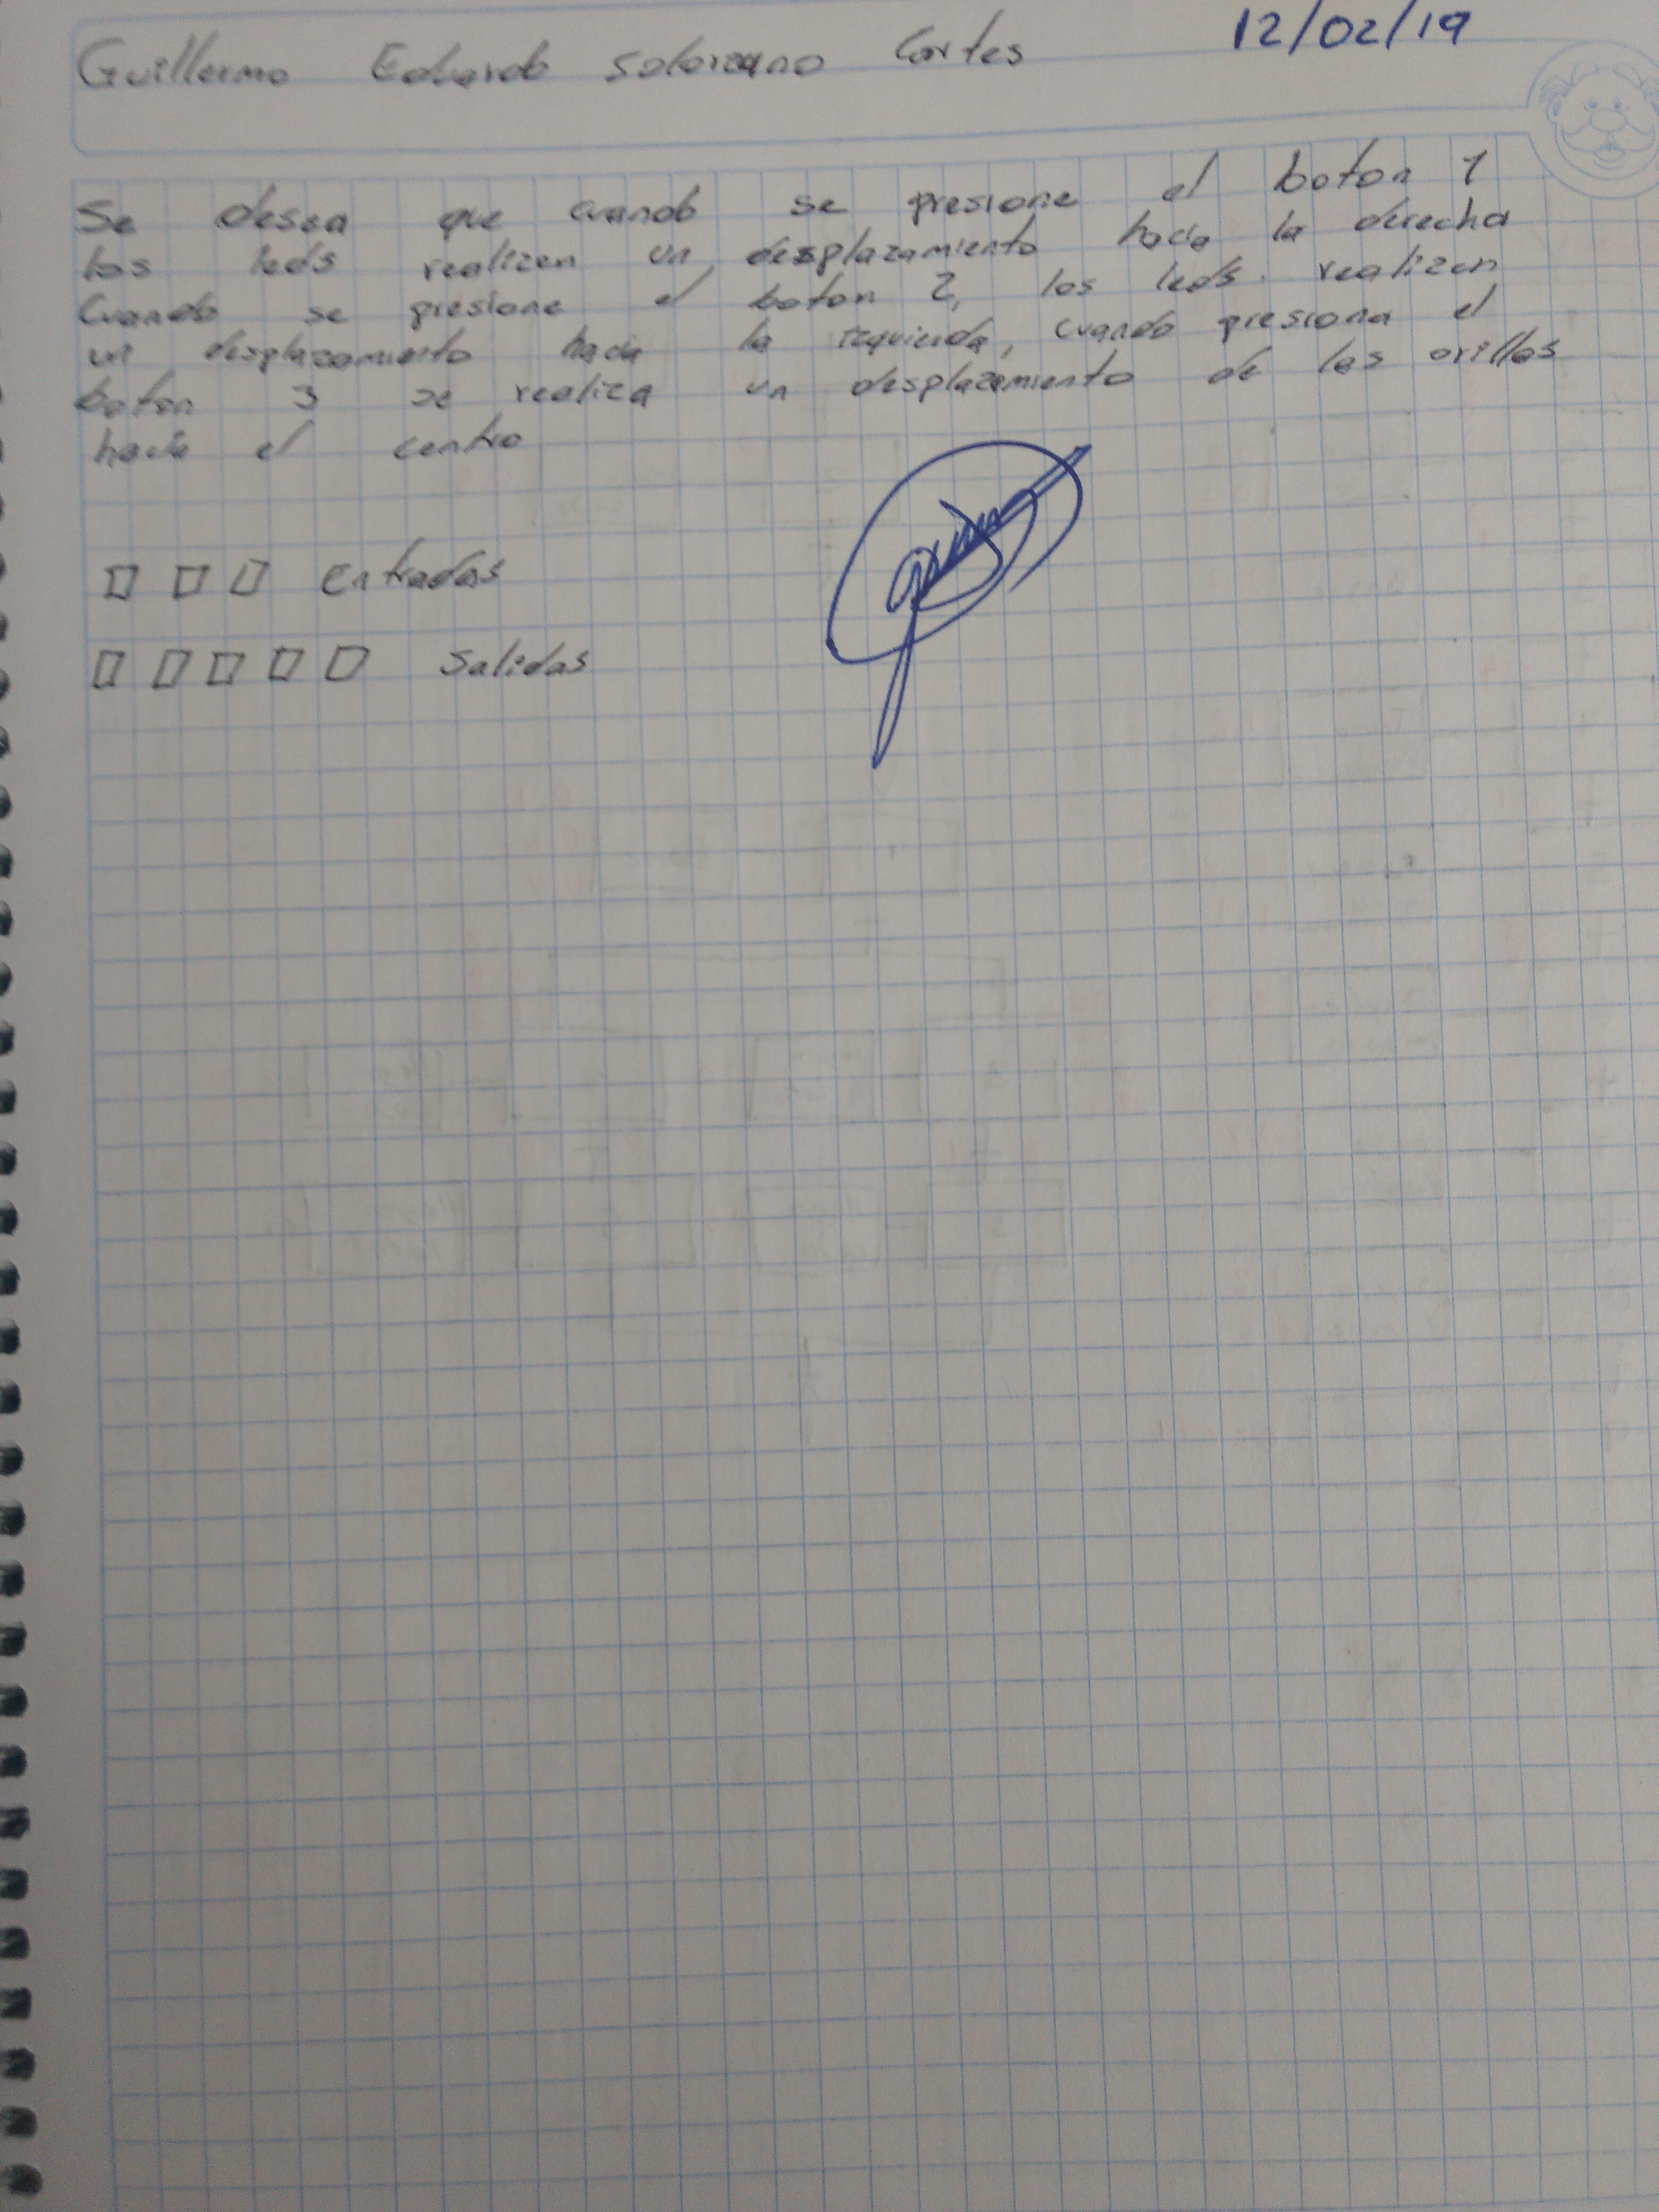 Guillermo Eduardo Solorzano Cortes 12/02/19
Se desea que cuando se presione el boton 1
los leds realizen un desplazamiento hacia la derecha
Cuando se presione el boton 2, los leds realizen
un desplazamiento hacia la izquierda, cuando presiona el
boton 3 se realiza un desplazamiento de las orillas
hacia el centro
Entradas
Salidas